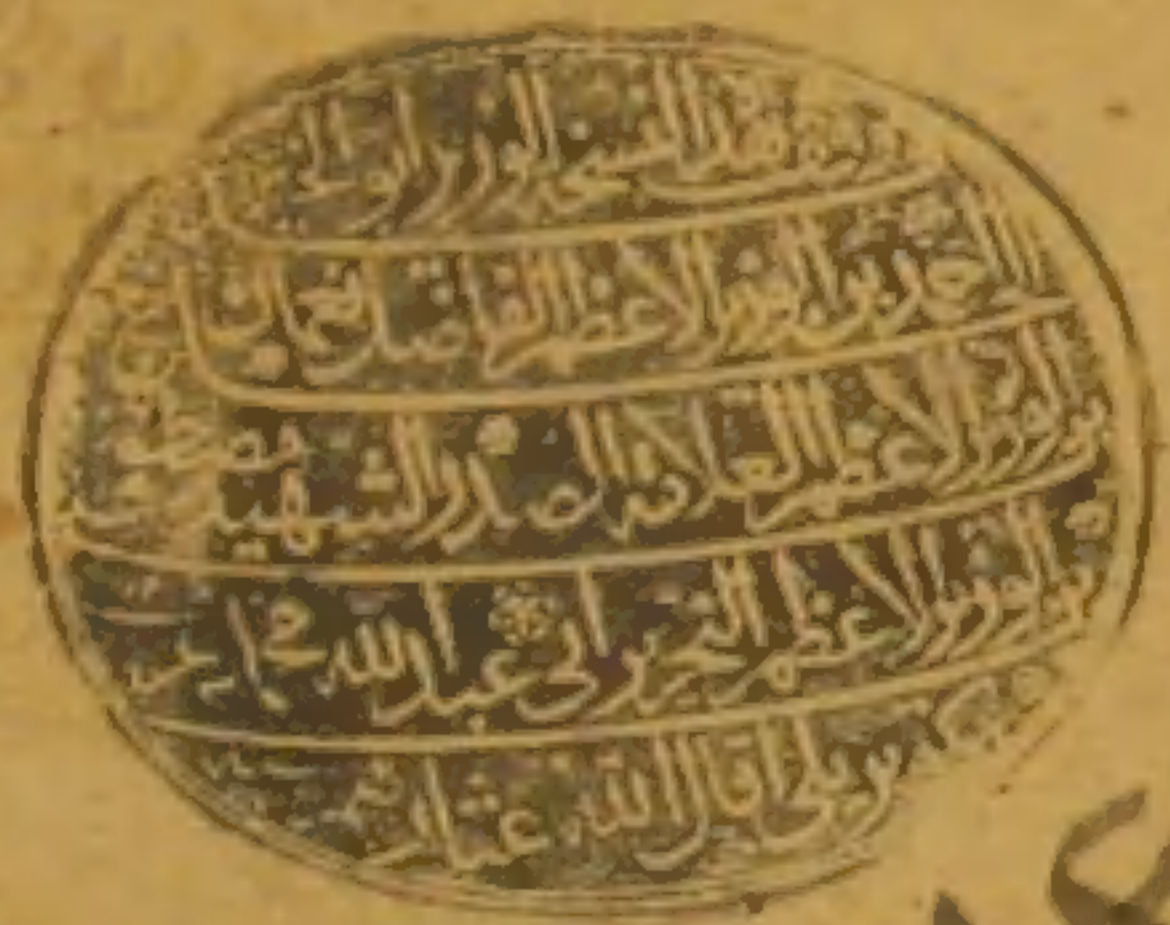 وقف هذا النسخة الوزير ابو
احمد بن الوزير الاعظم الفاضل نعمان
بن الوزير الاعظم العلامة الصدر الشهيد مصطفى
بن الوزير الاعظم النحرير ابي عبد الله محمد
بكوپريلي اقال الله عثارهم